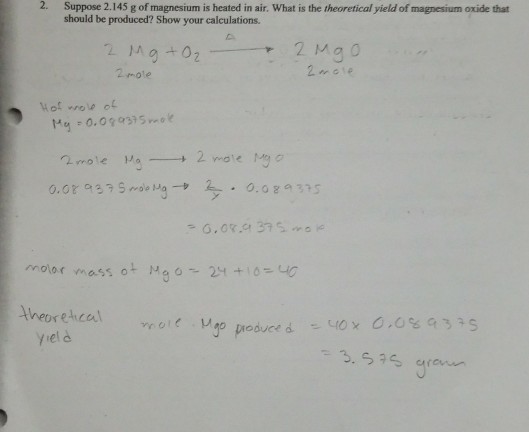 2. Suppose 2.145 g of magnesium is heated in air. What is the theoretical yield of magnesium oxide that
should be produced? Show your calculations.
Δ
2 Mg + O2 → 2 MgO
2 mole 2 mole
No of mole of
Mg = 0.089375 mole
2 mole Mg → 2 mole MgO
0.089375 mole Mg → 2/ . 0.089375
= 0.089375 mole
molar mass of MgO = 24 + 16 = 40
theoretical
yield
mole MgO produced = 40 x 0.089375
= 3.575 gram